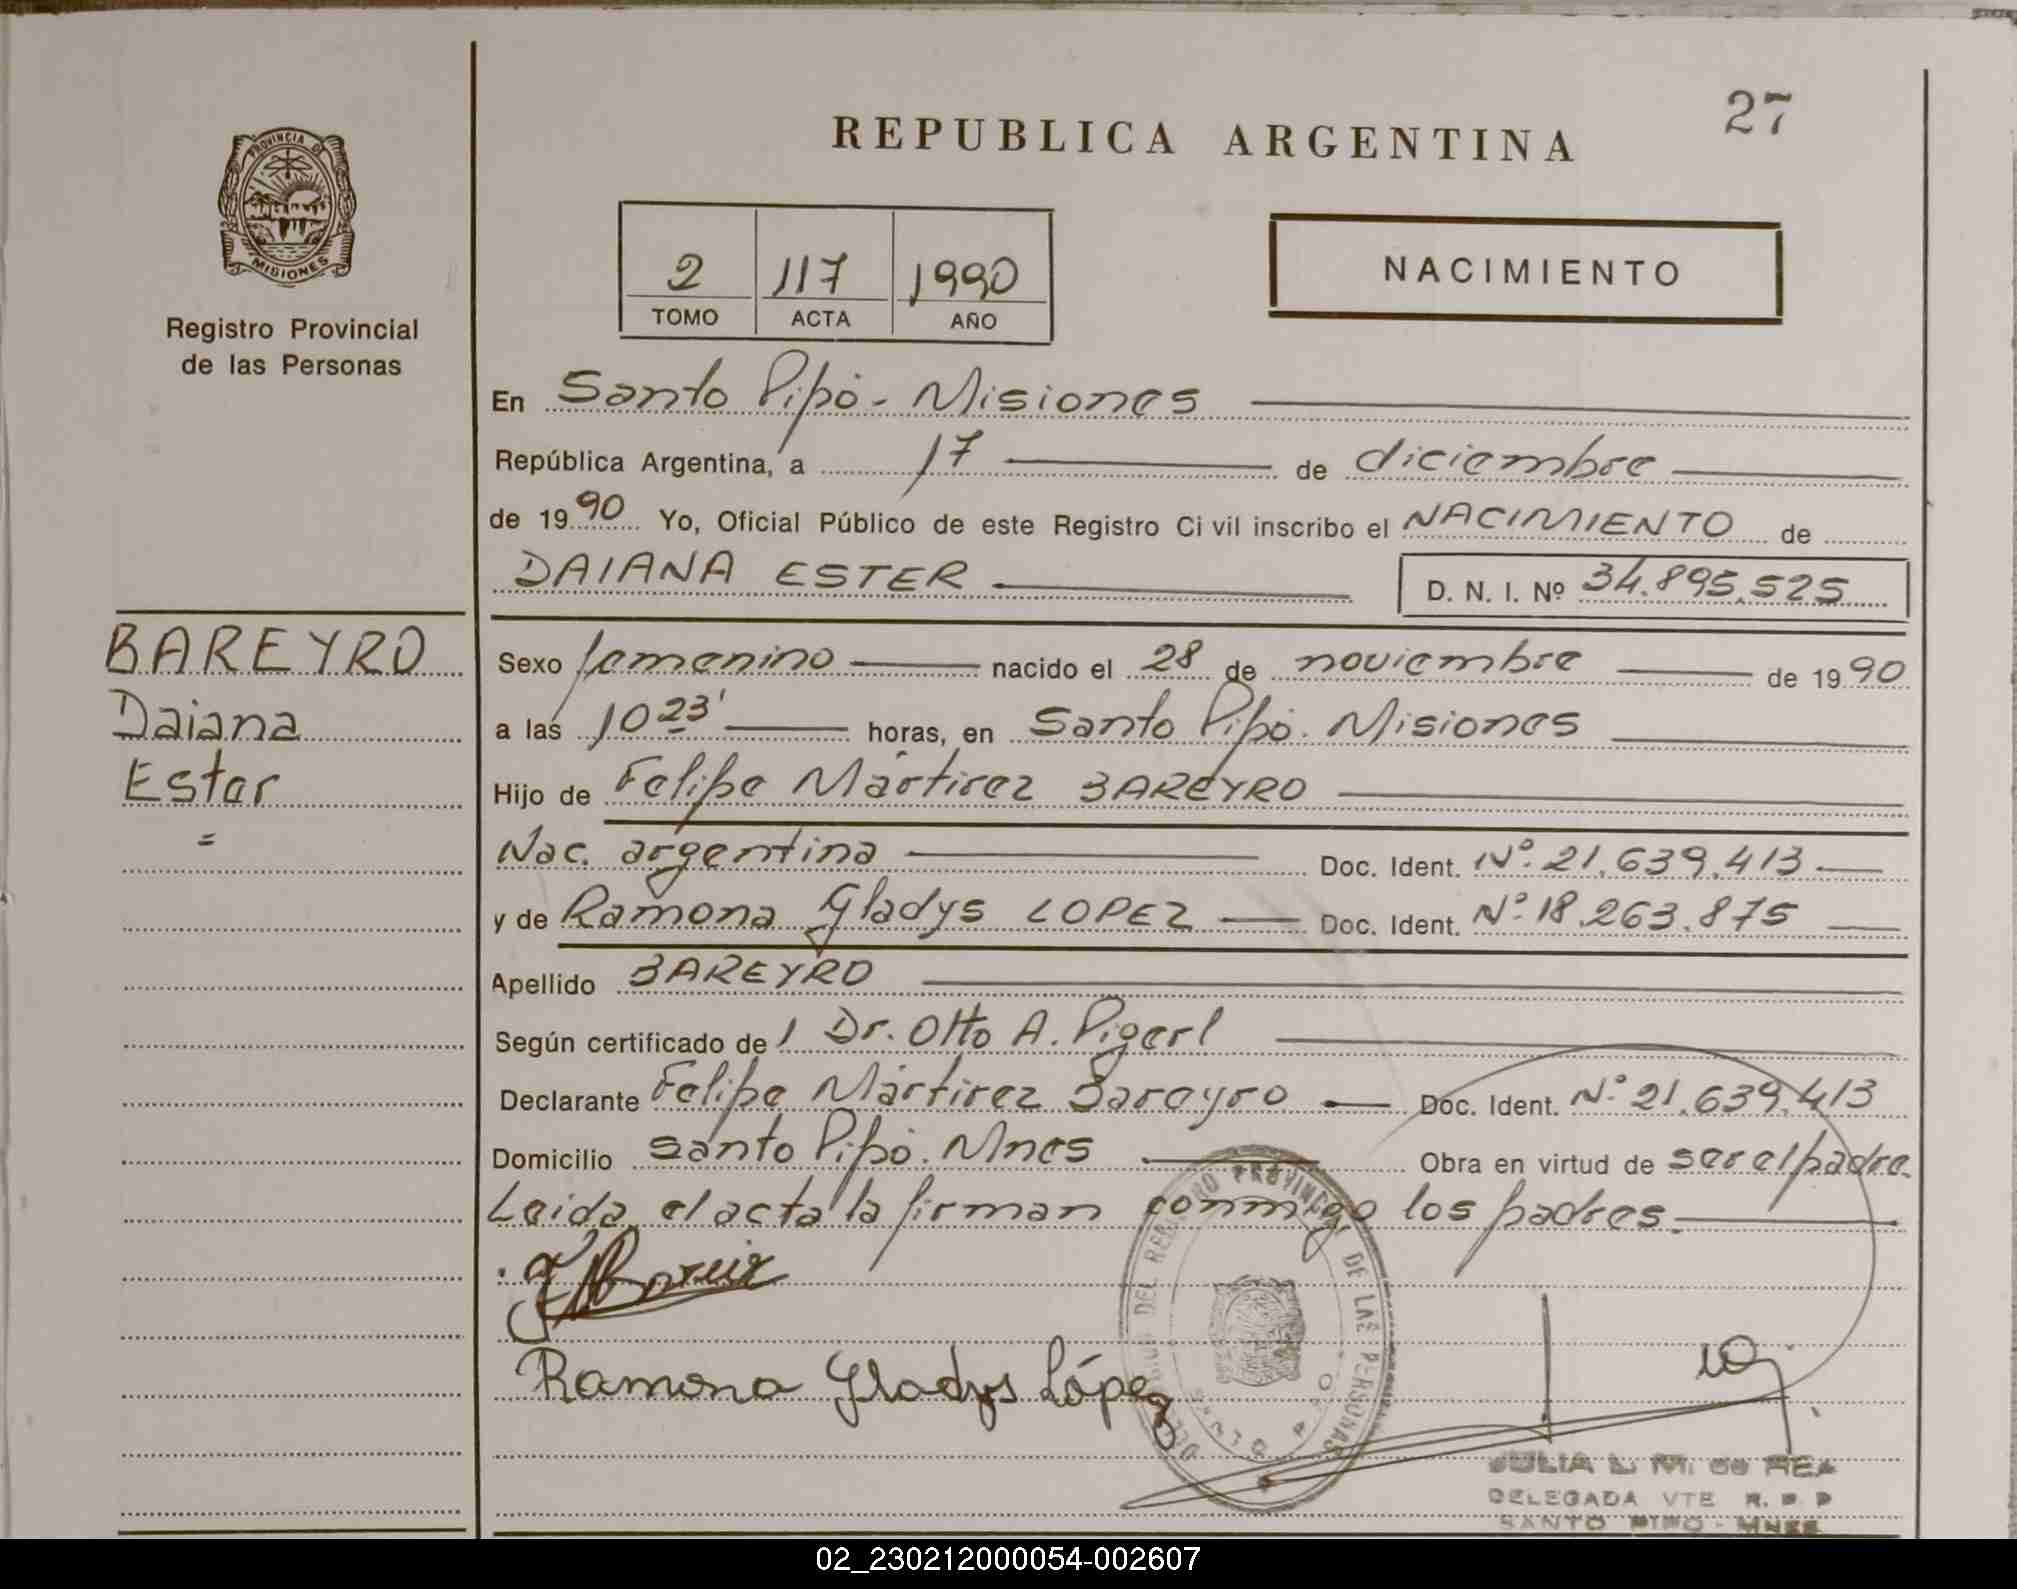 27
REPUBLICA ARGENTINA
PROVINCIA D
MISIONES
Registro Provincial
de las Personas
2 117 1990
TOMO ACTA AÑO
NACIMIENTO
En Santo Pipó - Misiones
República Argentina, a 17 de diciembre
de 1990 Yo, Oficial Público de este Registro Ci vil inscribo el NACIMIENTO de
DAIANA ESTER D. N. I. Nº 34.895.525
BAREYRO
Daiana
Ester
=
Sexo femenino nacido el 28 de noviembre de 1990
a las 10 23' horas, en Santo Pipó. Misiones
Hijo de Felipe Mártirez BAREYRO
Nac. argentina Doc. Ident. Nº 21.639.413
y de Ramona Gladys LOPEZ Doc. Ident. Nº 18.263.875
Apellido BAREYRO
Según certificado del Dr. Otto A. Pigerl
Declarante Felipe Mártirez Bareyro Doc. Ident. Nº 21.639.413
Domicilio Santo Pipó. Mnes Obra en virtud de ser el padre.
Leida el acta la firman conmigo los padres.
Ramona Gladys López
DEL REGISTRO PROVINCIAL DE LAS PERSONAS
SANTO PIPO
JULIA L. M. de REA
DELEGADA VTE R. P. P
SANTO PIPO - MNES
02_230212000054-002607